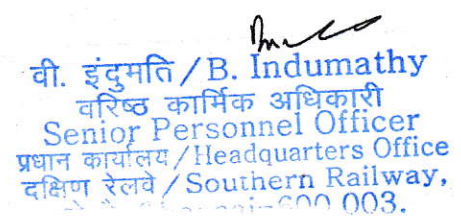 वी. इंदुमति / B. Indumathy
वरिष्ठ कार्मिक अधिकारी
Senior Personnel Officer
प्रधान कार्यालय / Headquarters Office
दक्षिण रेलवे / Southern Railway,
600 003.